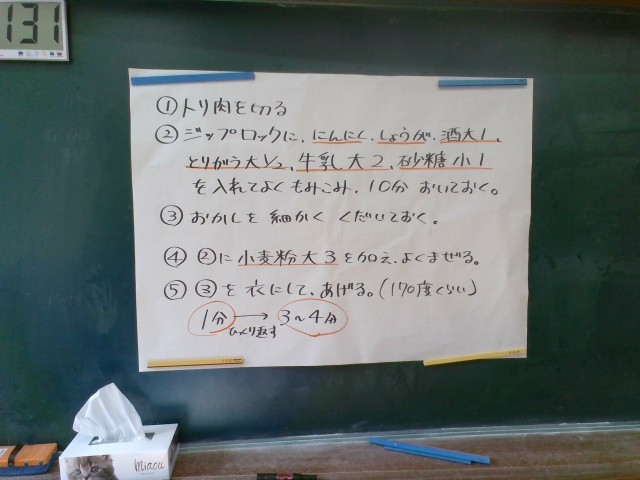 131
①トリ肉を切る
②ジップロックに、にんにく、しょうが、酒大1、
とりがら大1/2、牛乳大2、砂糖小1
を入れてよくもみこみ、10分おいておく。
③おかしを細かくくだいておく。
④②に小麦粉大3を加え、よくまぜる。
⑤③を衣にして、あげる。(170度くらい)
1分→3〜4分
ひっくり返す
miaou